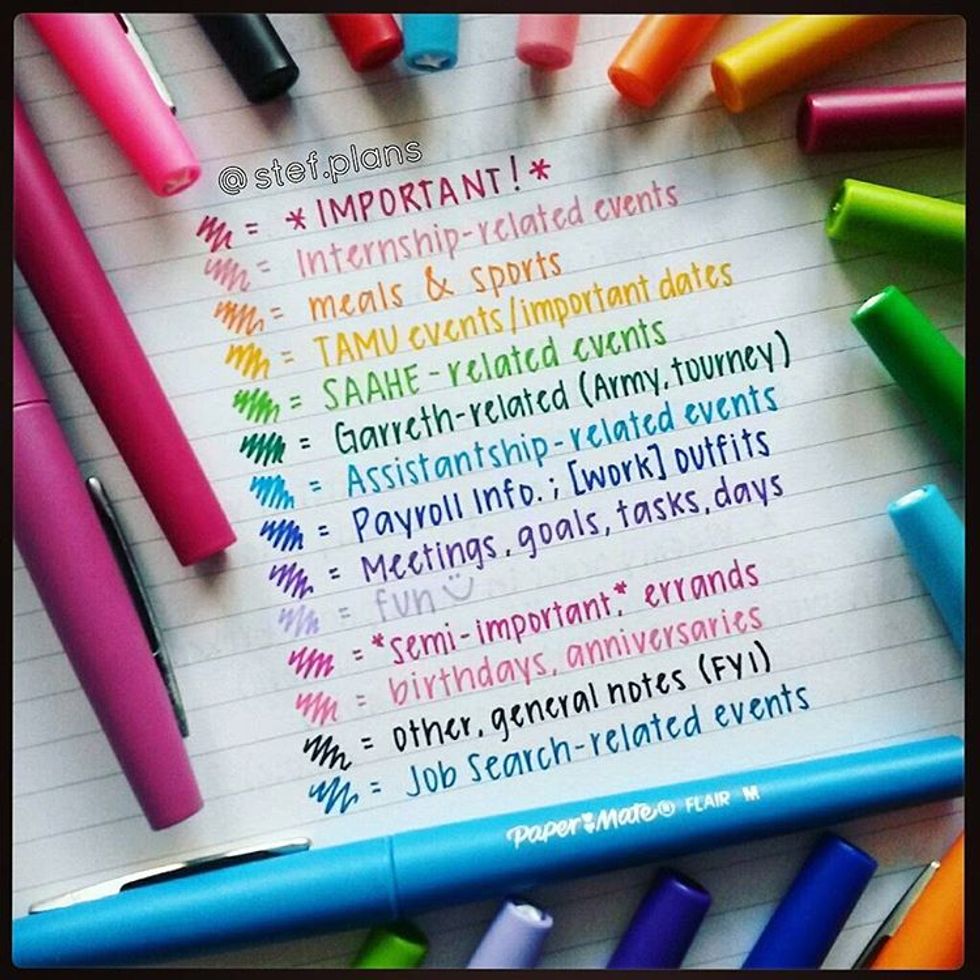 @stef.plans
= *IMPORTANT!*
= Internship-related events
= meals & sports
= TAMU events/important dates
= SAAHE-related events
= Garreth-related (Army, tourney)
= Assistantship-related events
= Payroll Info.; [work] outfits
= Meetings, goals, tasks, days
= fun
= *semi-important*, errands
= birthdays, anniversaries
= other, general notes (FYI)
= Job Search-related events
Paper Mate® FLAIR M